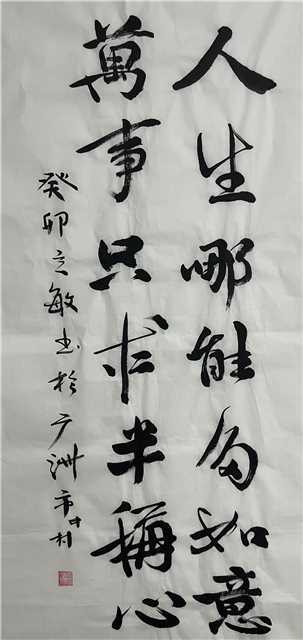 人生哪能多如意
萬事只求半稱心
癸卯立敏书於广洲市村